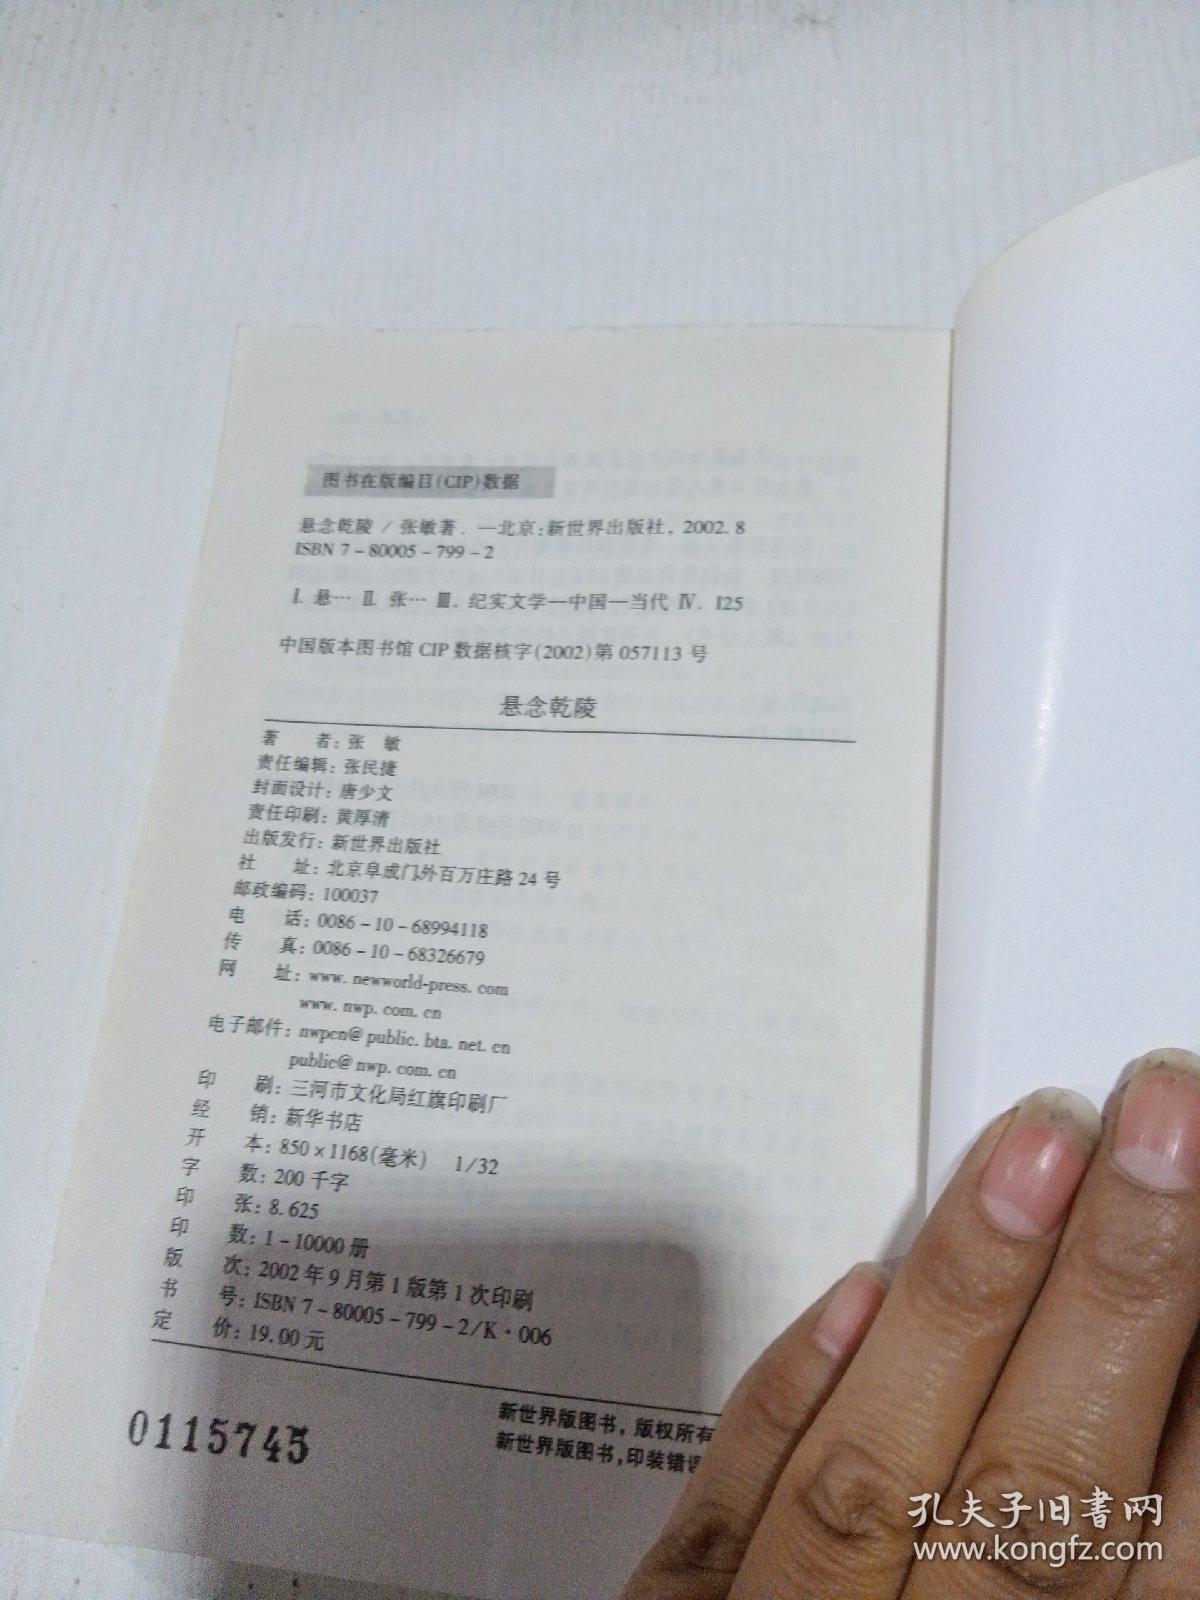 图书在版编目(CIP)数据
悬念乾陵 / 张敏著. —北京:新世界出版社, 2002.8
ISBN 7-80005-799-2
Ⅰ. 悬… Ⅱ. 张… Ⅲ. 纪实文学—中国—当代 Ⅳ. I25
中国版本图书馆 CIP 数据核字(2002)第 057113 号
悬念乾陵
著 者: 张 敏
责任编辑: 张民捷
封面设计: 唐少文
责任印刷: 黄厚清
出版发行: 新世界出版社
社 址: 北京阜成门外百万庄路 24 号
邮政编码: 100037
电 话: 0086-10-68994118
传 真: 0086-10-68326679
网 址: www.newworld-press.com
www.nwp.com.cn
电子邮件: nwpcn@public.bta.net.cn
public@nwp.com.cn
印 刷: 三河市文化局红旗印刷厂
经 销: 新华书店
开 本: 850×1168(毫米) 1/32
字 数: 200 千字
印 张: 8.625
印 数: 1-10000 册
版 次: 2002 年 9 月第 1 版第 1 次印刷
书 号: ISBN 7-80005-799-2/K·006
定 价: 19.00 元
新世界版图书, 版权所有
新世界版图书, 印装错误
0115745
孔夫子旧书网
www.kongfz.com